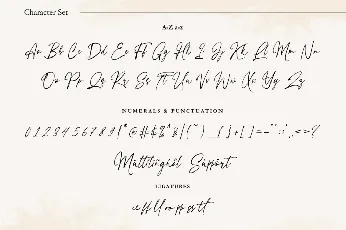 Character Set
A-Z a-z
Aa Bb Cc Dd Ee Ff Gg Hh Ii Jj Kk Ll Mm Nn
Oo Pp Qq Rr Ss Tt Uu Vv Ww Xx Yy Zz
NUMERALS & PUNCTUATION
0 1 2 3 4 5 6 7 8 9
Multilingual Support
LIGATURES